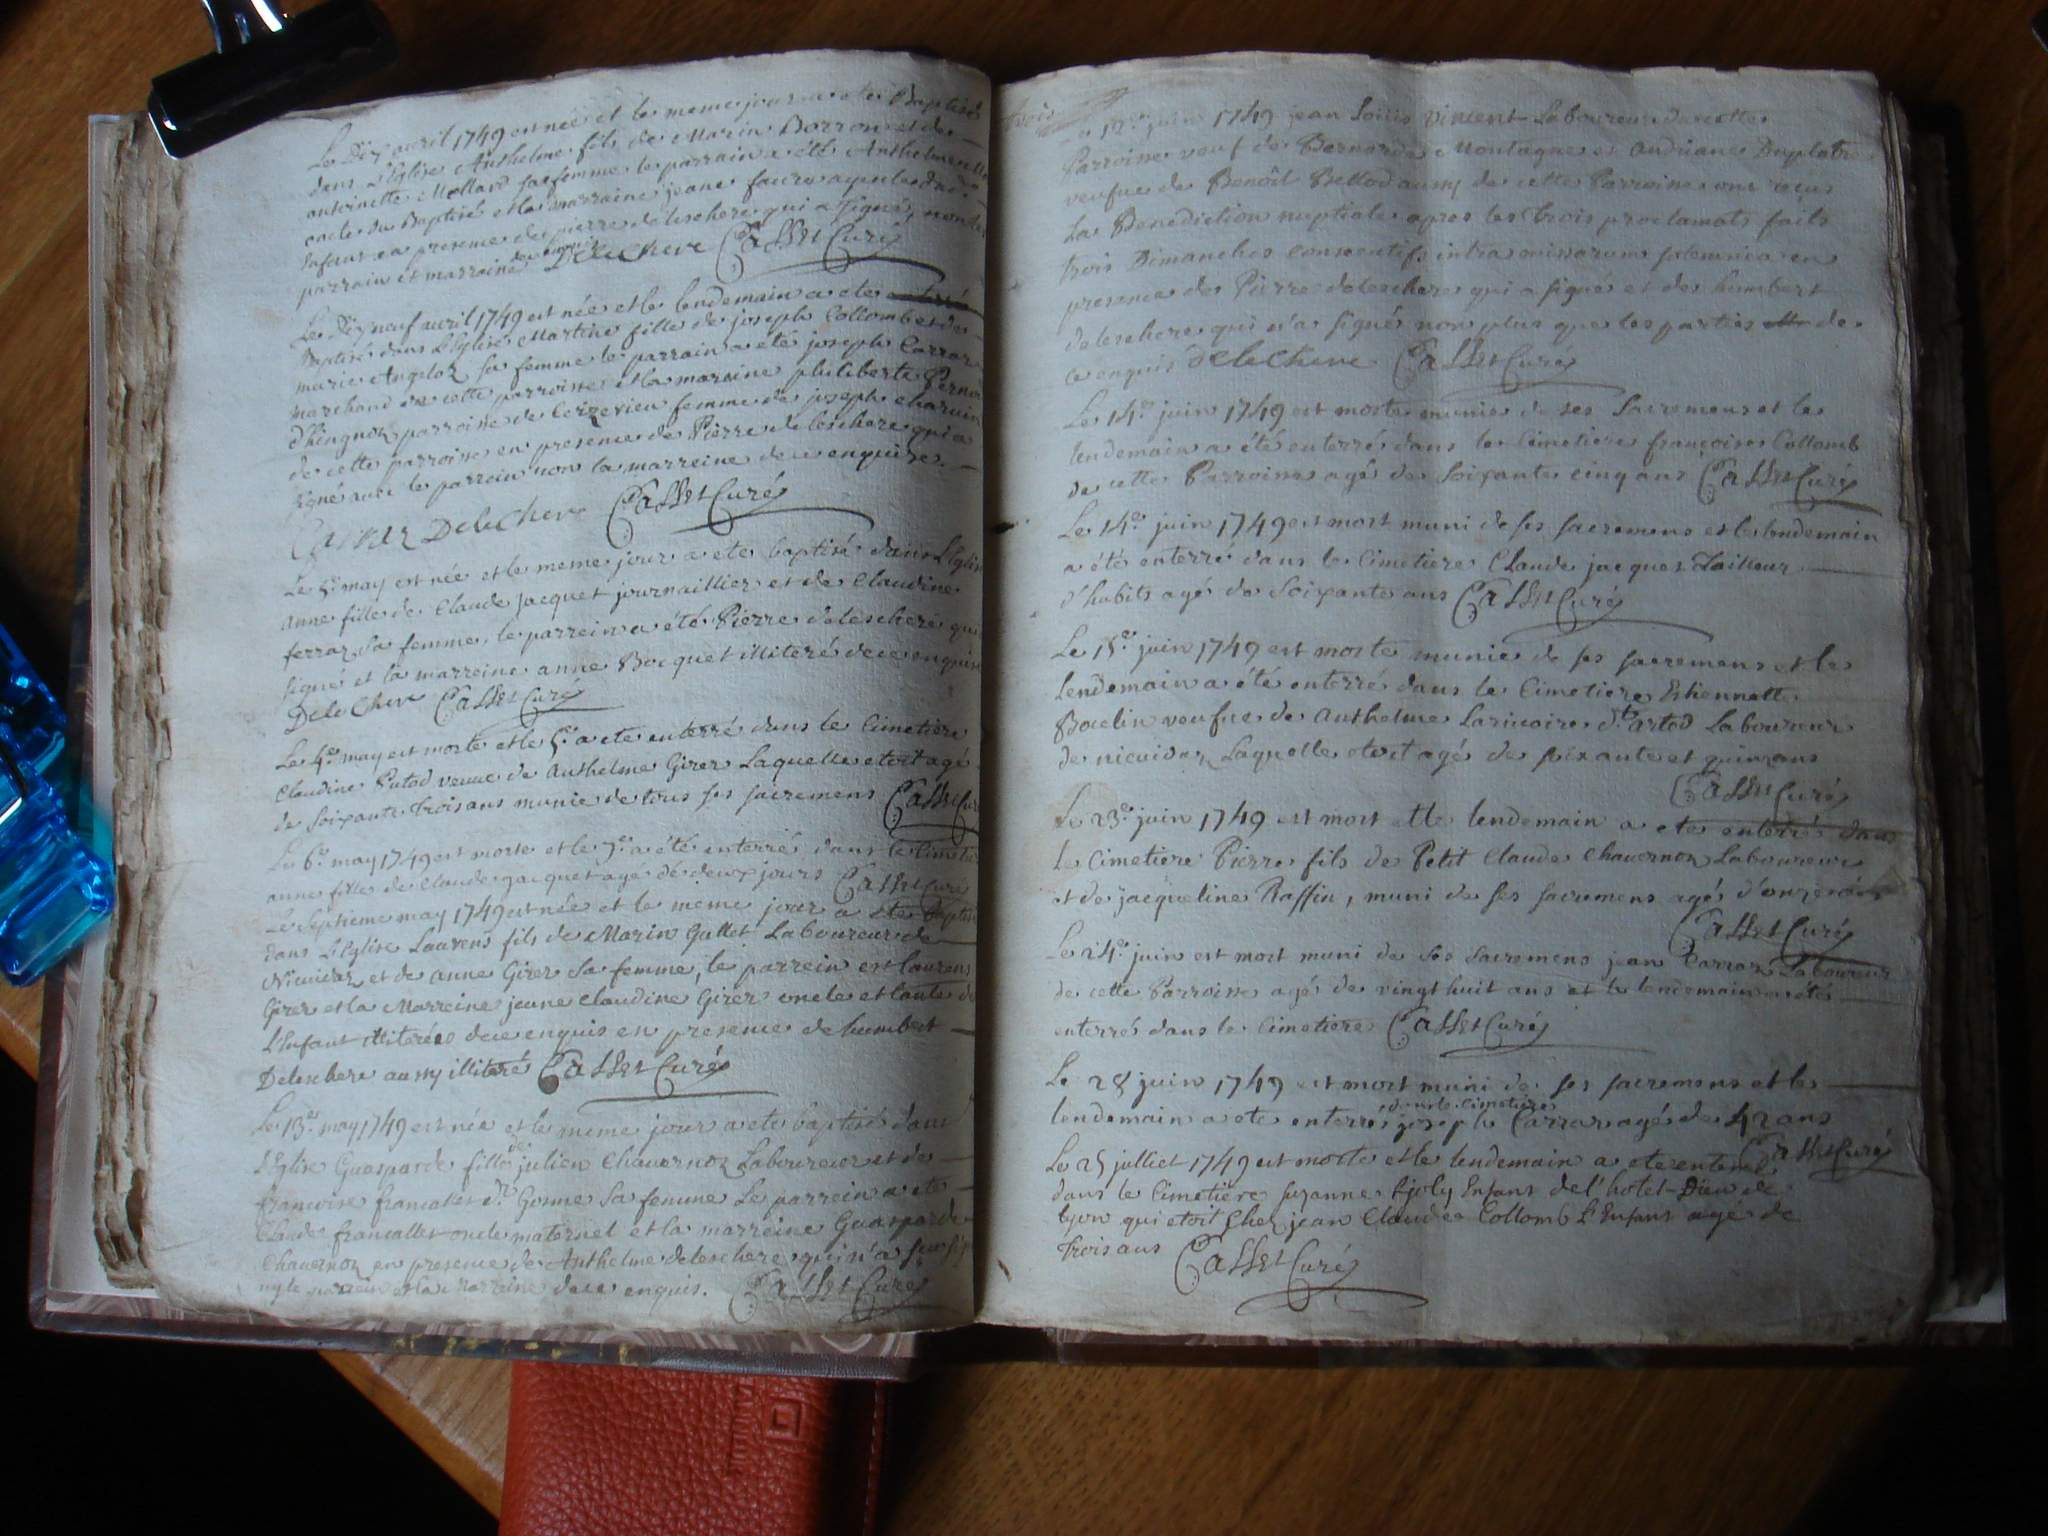 Le Dix avril 1749 est née et le meme jour a eté Baptisé
dans L'Eglise Anthelme fils de Marin Borron et de
antoinette Mollard sa femme le parrain a été Anthelme
oncle du Baptisé et la marraine jeane faure ayeule du d.
Enfant en presence de pierre deleschere qui a signé, non les
parrain et marraine de ce enquis DeleChere Casset Curé
Le Dix neuf avril 1749 est née et le lendemain a eté
Baptisé dans L'Eglise Martine fille de joseph Collomb et de
marie Angeloz sa femme le parrain a été joseph Carraz
marchand de cette parroisse et la marraine philiberte Pernod
d'hingnoz parroisse de Ceizerieu femme de joseph charvin
de cette parroisse en presence de Pierre deleschere qui a
signé avec le parrain non la marreine de ce enquise.
Carraz DeleChere Casset Curé
Le 5e may est née et le meme jour a eté baptisé dans L'Eglise
anne fille de Claude jacquet journaillier et de Claudine
ferraz sa femme, le parrein a été Pierre deleschere qui
signé et la marreine anne Bocquet illiteré de ce enquise
DeleChere Casset Curé
Le 4e may est morte et le 5e a eté enterré dans le Cimetiere
Claudine Putod veuve de Anthelme Girer Laquelle etoit agé
de soixante trois ans munie de tous ses sacremens Casset Curé
Le 6e may 1749 est morte et le 7e a été enterré dans le Cimetiere
anne fille de Claude jacquet agé de deux jours Casset Curé
Le septieme may 1749 est née et le meme jour a eté baptisé
dans L'Eglise Laurens fils de Marin Gallet Laboureur de
Nicuidaz et de anne Girer sa femme, le parrein est laurens
Girer et la Marreine jeane Claudine Girer oncle et tante de
L'Enfant illiterés de ce enquis en presence de humbert
Deleschere aussy illiteré Casset Curé
Le 13e may 1749 est née et le meme jour a eté baptisé dans
L'Eglise Gasparde fille de julien Chavernoz Laboureur et de
francoise francallet dt Gonne sa femme Le parrein a eté
Claude francallet oncle maternel et la marreine Gasparde
Chavernoz en presence de Anthelme deleschere qui n'a sçu signé
ny le parrein et la marreine de ce enquis. Casset Curé
trois
Le 17e juin 1749 jean Loüis vincent Laboureur de cette
Parroisse veuf de Bernarde Montagne et andriane Duplatre
veufue de Benoît Bellod aussy de cette Parroisse ont reçus
La Benediction nuptiale apres les trois proclamats faits
trois Dimanches consecutifs intra missarum solemnia en
presence de Pierre deleschere qui a signé et de humbert
deleschere qui n'a signé non plus que les parties de
ce enquis deleChere Casset Curé
Le 14e juin 1749 est morte munie de ses Sacremens et le
lendemain a été enterré dans le Cimetiere françoise Collomb
de cette Parroisse agé de soixante cinq ans Casset Curé
Le 14e juin 1749 est mort muni de ses sacremens et le lendemain
a été enterré dans le Cimetiere Claude jacquet Tailleur
d'habits agé de soixante ans Casset Curé
Le 15e juin 1749 est morte munie de ses sacremens et le
lendemain a été enterré dans le Cimetiere Estiennette
Bocelin veufue de Anthelme Laricoire dt artod Laboureur
de nicuidaz Laquelle etoit agé de soixante et quinz ans
Casset Curé
Le 23e juin 1749 est mort et le lendemain a eté enterré dans
le Cimetiere Pierre fils de Petit Claude Chavernoz Laboureur
et de jacqueline Raffin, muni de ses sacremens agé d'onze
Casset Curé
Le 24e juin est mort muni de ses sacremens jean Carraz Laboureur
de cette Parroisse agé de vingt huit ans et le lendemain a été
enterré dans le Cimetiere Casset Curé
Le 28 juin 1749 est mort muni de ses sacremens et le
lendemain a eté enterré dans le Cimetiere joseph Carraz agé de 42 ans
Casset Curé
Le 25 julliet 1749 est morte et le lendemain a eté enterré
dans le Cimetiere suzanne joly Enfant de l'hotel-Dieu de
lyon qui etoit chez jean Claude Collomb L'Enfant agé de
trois ans Casset Curé